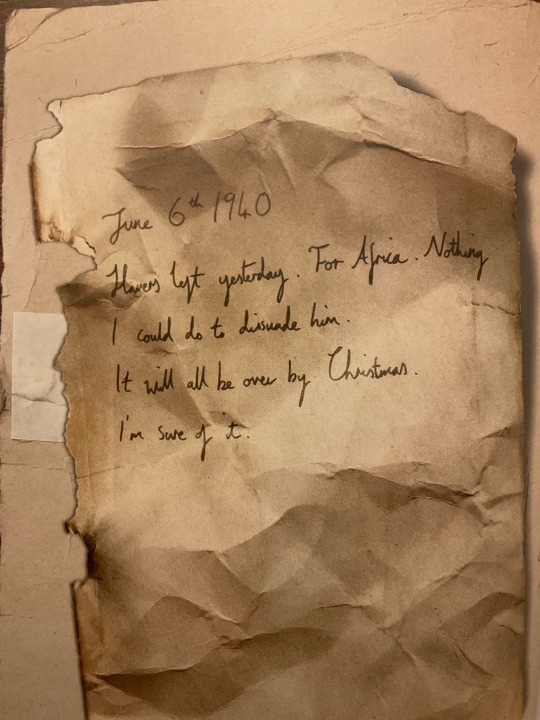 June 6th 1940
Havers left yesterday. For Africa. Nothing
I could do to dissuade him.
It will all be over by Christmas.
I'm sure of it.